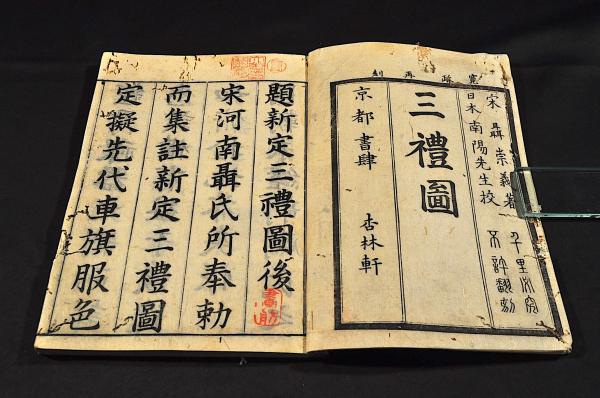 寛政再刻
宋 聶崇義著
日本 南陽先生校
千里必究
不許翻刻
三禮圖
京都書肆 杏林軒
題新定三禮圖後
宋河南聶氏所奉勅
而集註新定三禮圖
定擬先代車旗服色